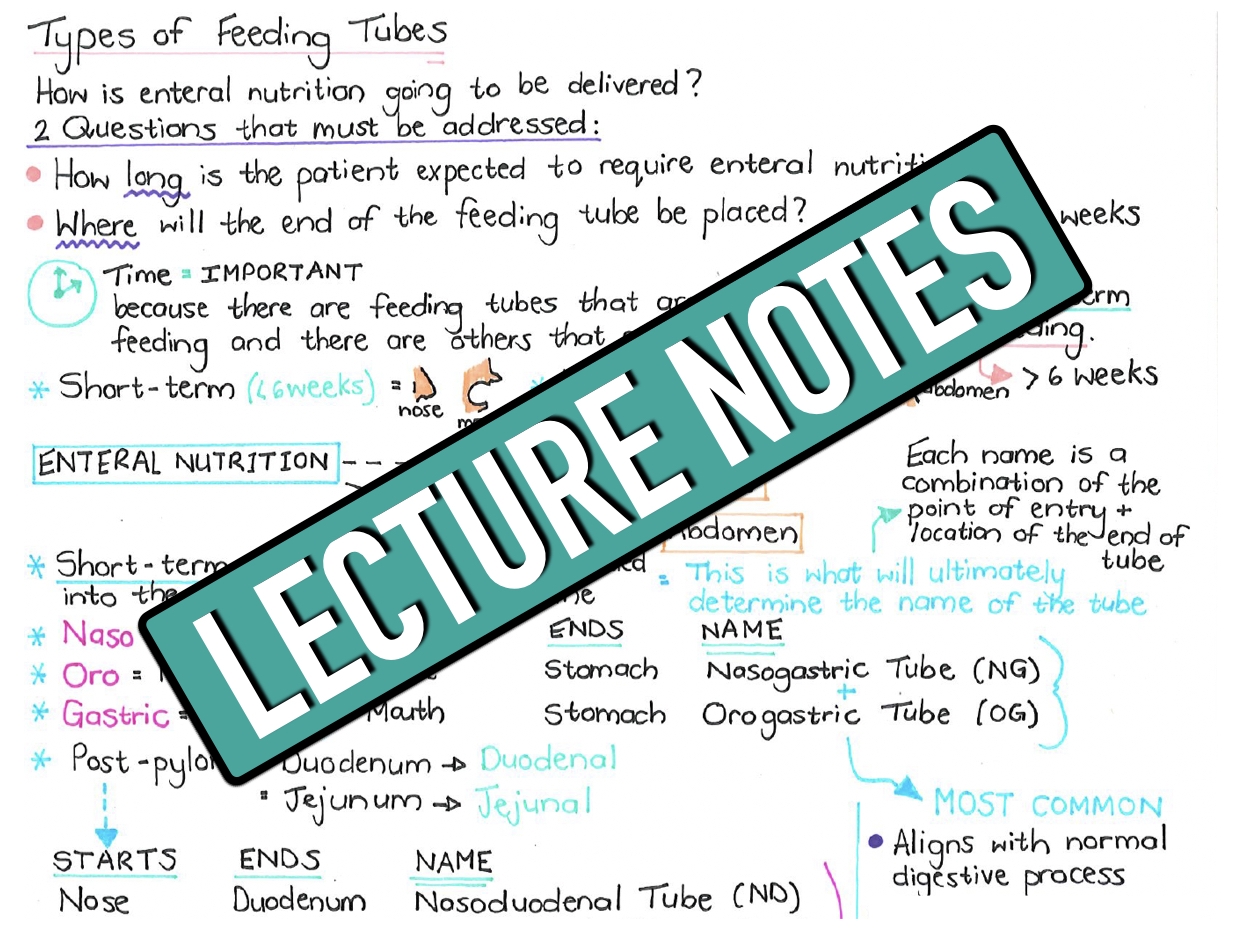 Types of Feeding Tubes
How is enteral nutrition going to be delivered?
2 Questions that must be addressed:
• How long is the patient expected to require enteral
• Where will the end of the feeding tube be placed?
weeks
Time = IMPORTANT
because there are feeding tubes that
feeding and there are others that
* Short-term (<6weeks) =
nose
> 6 weeks
LECTURE NOTES
ENTERAL NUTRITION
Each name is a
combination of the
point of entry +
location of the end of
tube
* Short-term
into the
= This is what will ultimately
determine the name of the tube
ENDS NAME
* Naso
* Oro = Stomach Nasogastric Tube (NG)
+
* Gastric = Mouth Stomach Orogastric Tube (OG)
* Duodenum → Duodenal
= Jejunum → Jejunal
MOST COMMON
• Aligns with normal
digestive process
STARTS ENDS NAME
Nose Duodenum Nasoduodenal Tube (ND)